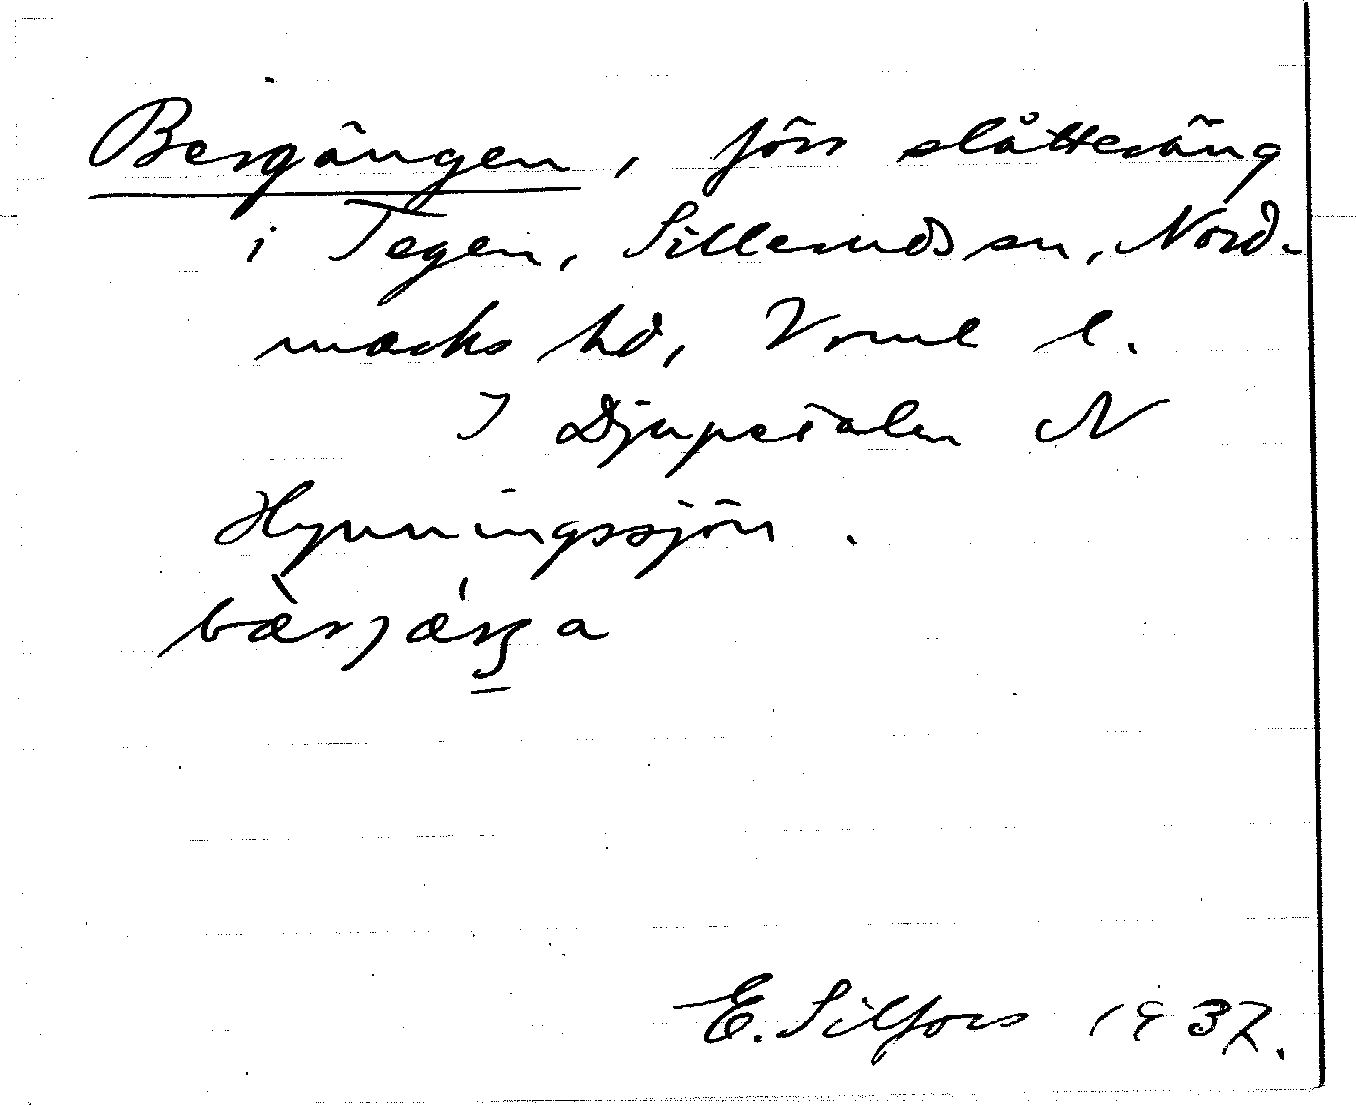 Bergängen, förr slåtteräng
i Tegen, Silleruds sn, Nord-
marks hd, Vrml l.
I Djupedalen N
Hynningssjön.
E. Silfors 1937.